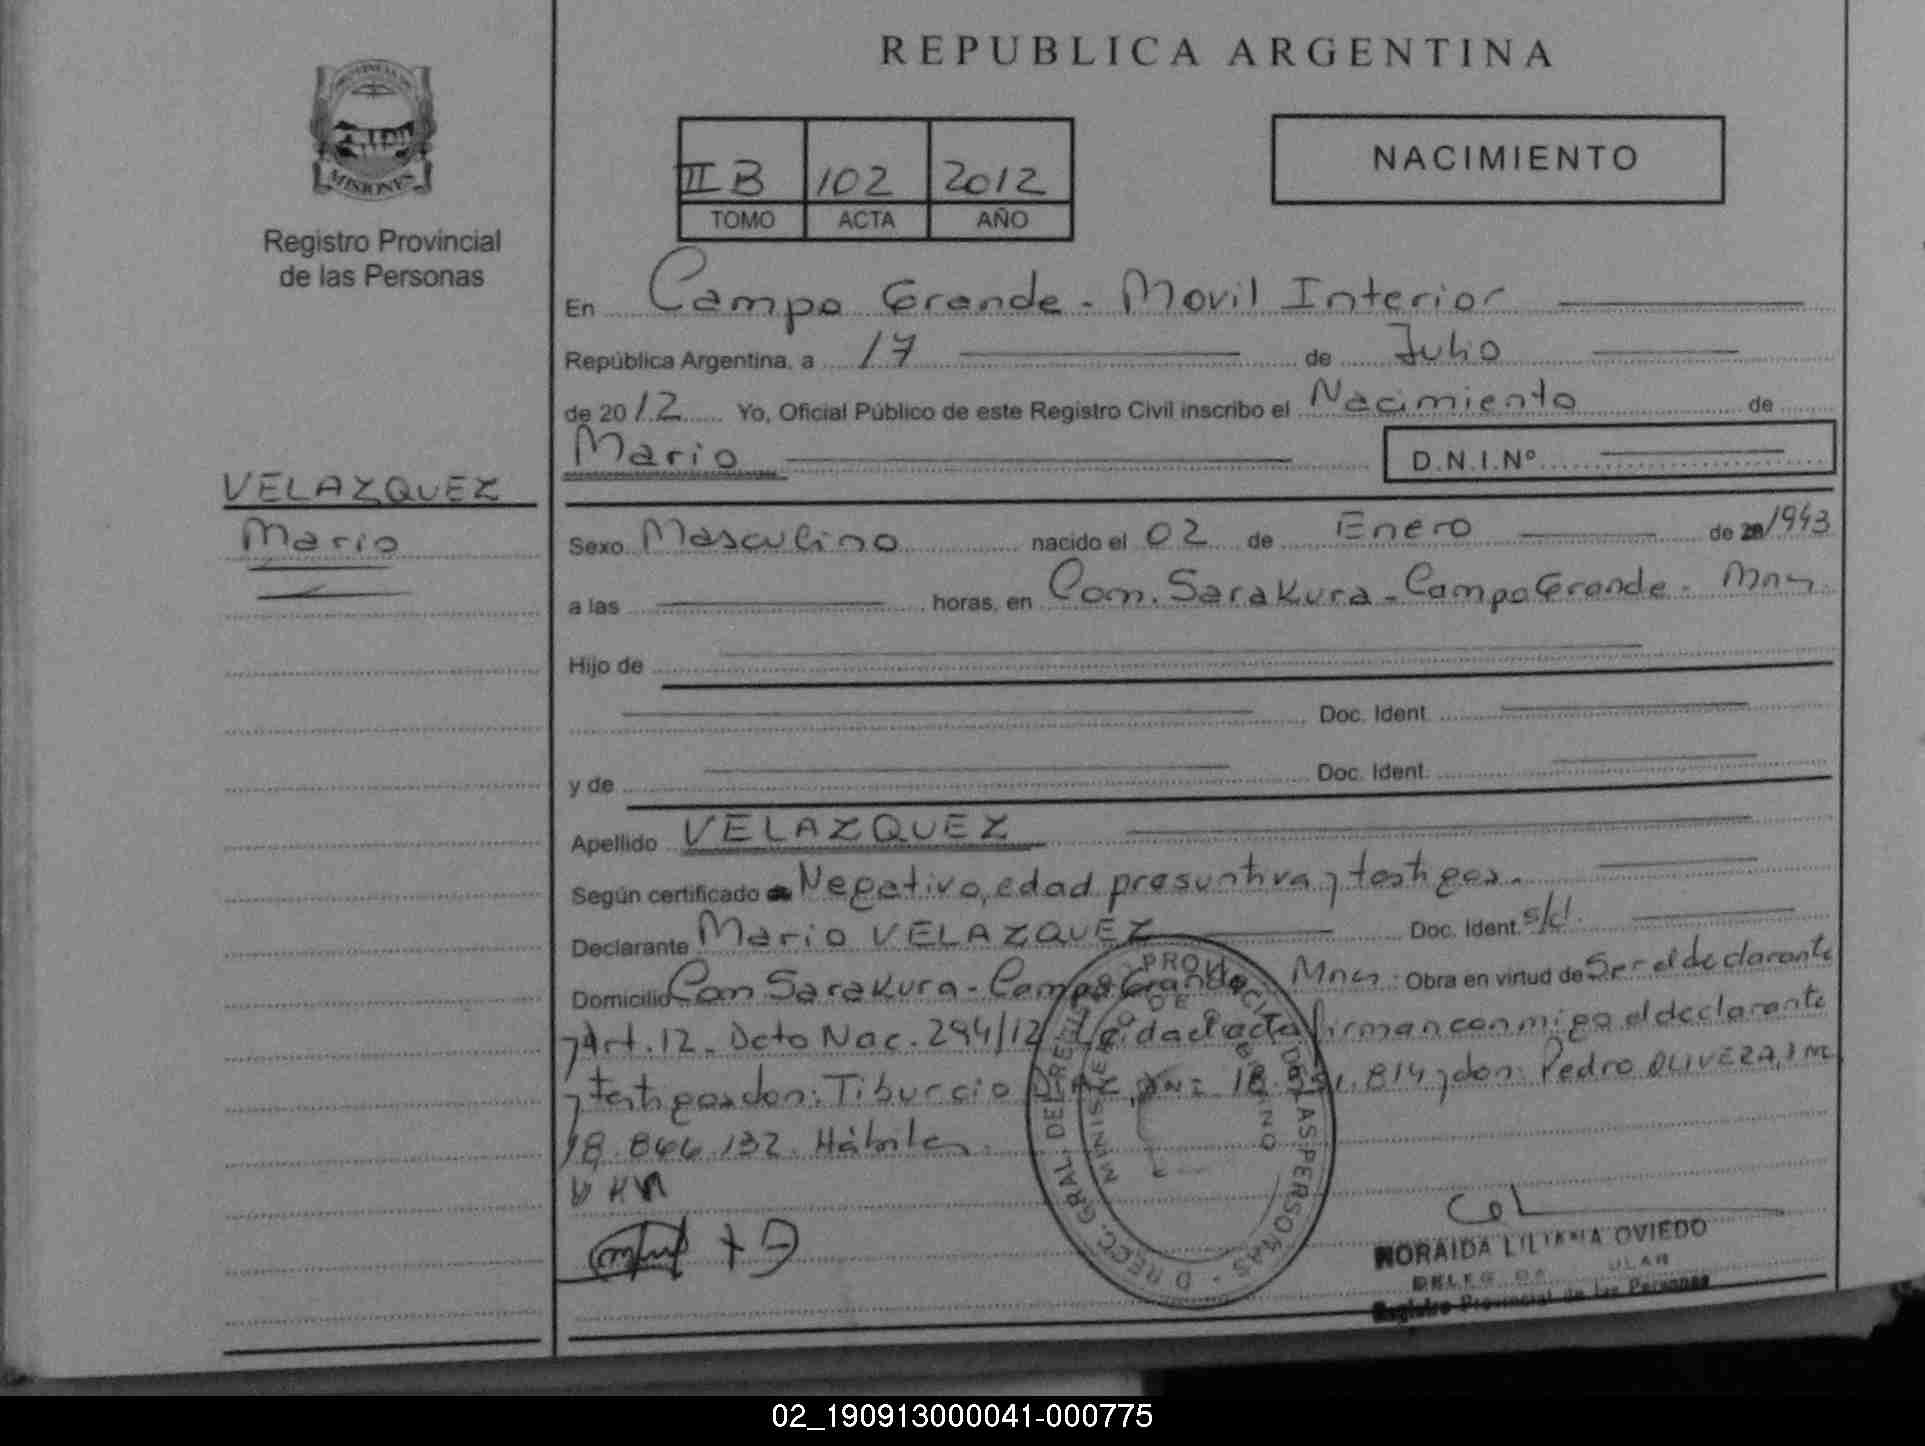 REPUBLICA ARGENTINA
PROVINCIA DE
MISIONES
Registro Provincial
de las Personas
II B 102 2012
TOMO ACTA AÑO
NACIMIENTO
En Campo Grande - Movil Interior
República Argentina, a 17 de Julio
de 2012 Yo, Oficial Público de este Registro Civil inscribo el Nacimiento de
Mario D.N.I.Nº
VELAZQUEZ
Mario
Sexo Masculino nacido el 02 de Enero de 1943
a las horas, en Com. Sarakura - Campo Grande - Mnes.
Hijo de
Doc. Ident.
y de Doc. Ident.
Apellido VELAZQUEZ
Según certificado Negativo, edad presuntiva y testigos.
Declarante Mario VELAZQUEZ Doc. Ident. s/d.
Domicilio Com Sarakura - Campo Grande Mnes. Obra en virtud de Ser el declarante
y Art. 12. Dcto Nac. 294/12. Leida el acta firman conmigo el declarante
y testigos don: Tiburcio 18. 814 y don: Pedro OLIVERA,
18.844.132. Hábiles.
DIRECC. GRAL. DEL REGISTRO PROVINCIAL DE LAS PERSONAS
MINISTERIO DE GOBIERNO
NORAIDA LILIANA OVIEDO
Registro Provincial de las Personas
02_190913000041-000775